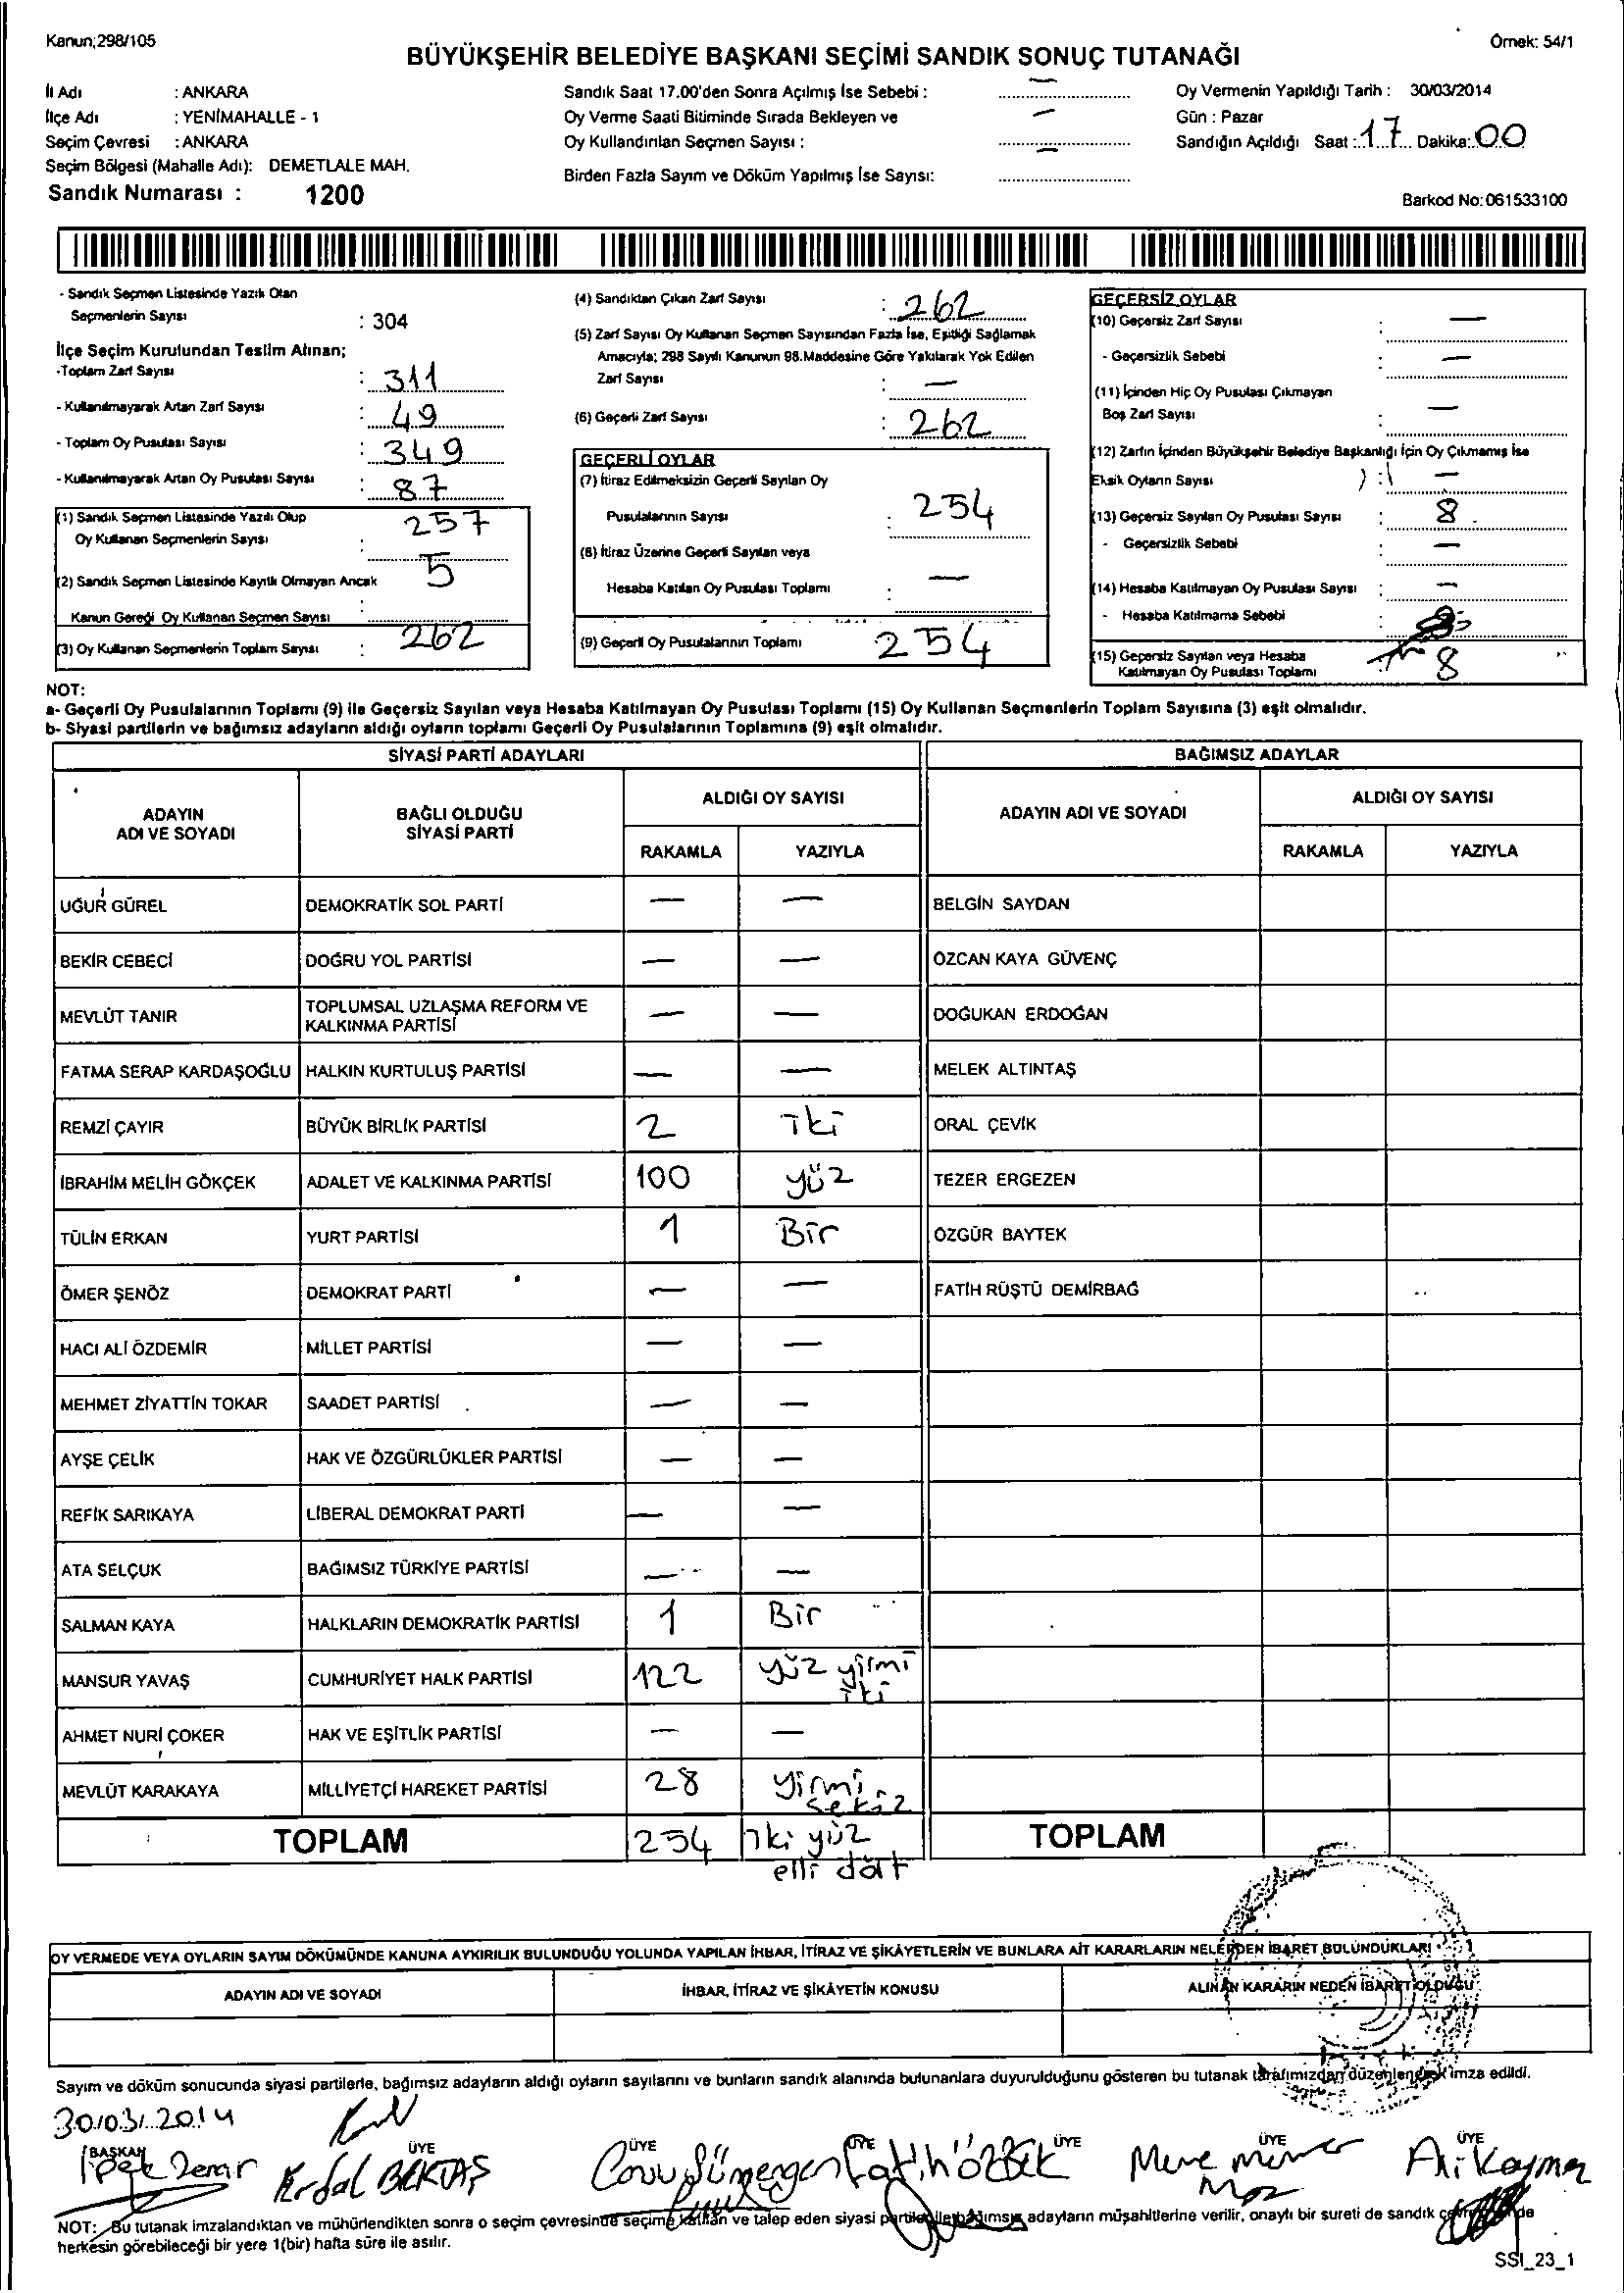 Kanun;298/105
Örnek: 54/1
BÜYÜKŞEHİR BELEDİYE BAŞKANI SEÇİMİ SANDIK SONUÇ TUTANAĞI
İl Adı : ANKARA
İlçe Adı : YENİMAHALLE - 1
Seçim Çevresi : ANKARA
Seçim Bölgesi (Mahalle Adı): DEMETLALE MAH.
Sandık Numarası : 1200
Sandık Saat 17.00'den Sonra Açılmış İse Sebebi : —
Oy Verme Saati Bitiminde Sırada Bekleyen ve —
Oy Kullandırılan Seçmen Sayısı :
Birden Fazla Sayım ve Döküm Yapılmış İse Sayısı: —
Oy Vermenin Yapıldığı Tarih : 30/03/2014
Gün : Pazar
Sandığın Açıldığı Saat : 17 Dakika: 00
Barkod No:061533100
- Sandık Seçmen Listesinde Yazılı Olan
Seçmenlerin Sayısı : 304
İlçe Seçim Kurulundan Teslim Alınan;
-Toplam Zarf Sayısı : 311
- Kullanılmayarak Artan Zarf Sayısı : 49
- Toplam Oy Pusulası Sayısı : 349
- Kullanılmayarak Artan Oy Pusulası Sayısı : 87
(1) Sandık Seçmen Listesinde Yazılı Olup
Oy Kullanan Seçmenlerin Sayısı : 257
(2) Sandık Seçmen Listesinde Kayıtlı Olmayan Ancak
Kanun Gereği Oy Kullanan Seçmen Sayısı : 5
(3) Oy Kullanan Seçmenlerin Toplam Sayısı : 262
(4) Sandıktan Çıkan Zarf Sayısı : 262
(5) Zarf Sayısı Oy Kullanan Seçmen Sayısından Fazla İse, Eşitliği Sağlamak
Amacıyla; 298 Sayılı Kanunun 98.Maddesine Göre Yakılarak Yok Edilen
Zarf Sayısı : —
(6) Geçerli Zarf Sayısı : 262
GEÇERLİ OYLAR
(7) İtiraz Edilmeksizin Geçerli Sayılan Oy
Pusulalarının Sayısı : 254
(8) İtiraz Üzerine Geçerli Sayılan veya
Hesaba Katılan Oy Pusulası Toplamı : —
(9) Geçerli Oy Pusulalarının Toplamı 254
GEÇERSİZ OYLAR
(10) Geçersiz Zarf Sayısı : —
- Geçersizlik Sebebi : —
(11) İçinden Hiç Oy Pusulası Çıkmayan
Boş Zarf Sayısı : —
(12) Zarfın İçinden Büyükşehir Belediye Başkanlığı İçin Oy Çıkmamış İse
Eksik Oyların Sayısı : —
(13) Geçersiz Sayılan Oy Pusulası Sayısı : 8
- Geçersizlik Sebebi : —
(14) Hesaba Katılmayan Oy Pusulası Sayısı : —
- Hesaba Katılmama Sebebi :
(15) Geçersiz Sayılan veya Hesaba
Katılmayan Oy Pusulası Toplamı 8
NOT:
a- Geçerli Oy Pusulalarının Toplamı (9) ile Geçersiz Sayılan veya Hesaba Katılmayan Oy Pusulası Toplamı (15) Oy Kullanan Seçmenlerin Toplam Sayısına (3) eşit olmalıdır.
b- Siyasi partilerin ve bağımsız adayların aldığı oyların toplamı Geçerli Oy Pusulalarının Toplamına (9) eşit olmalıdır.
SİYASİ PARTİ ADAYLARI BAĞIMSIZ ADAYLAR
ADAYIN ADI VE SOYADI BAĞLI OLDUĞU SİYASİ PARTİ ALDIĞI OY SAYISI ADAYIN ADI VE SOYADI ALDIĞI OY SAYISI
RAKAMLA YAZIYLA RAKAMLA YAZIYLA
UĞUR GÜREL DEMOKRATİK SOL PARTİ — — BELGİN SAYDAN
BEKİR CEBECİ DOĞRU YOL PARTİSİ — — ÖZCAN KAYA GÜVENÇ
MEVLÜT TANIR TOPLUMSAL UZLAŞMA REFORM VE KALKINMA PARTİSİ — — DOĞUKAN ERDOĞAN
FATMA SERAP KARDAŞOĞLU HALKIN KURTULUŞ PARTİSİ — — MELEK ALTINTAŞ
REMZİ ÇAYIR BÜYÜK BİRLİK PARTİSİ 2 iki ORAL ÇEVİK
İBRAHİM MELİH GÖKÇEK ADALET VE KALKINMA PARTİSİ 100 yüz TEZER ERGEZEN
TÜLİN ERKAN YURT PARTİSİ 1 Bir ÖZGÜR BAYTEK
ÖMER ŞENÖZ DEMOKRAT PARTİ — — FATİH RÜŞTÜ DEMİRBAĞ
HACI ALİ ÖZDEMİR MİLLET PARTİSİ — —
MEHMET ZİYATTİN TOKAR SAADET PARTİSİ — —
AYŞE ÇELİK HAK VE ÖZGÜRLÜKLER PARTİSİ — —
REFİK SARIKAYA LİBERAL DEMOKRAT PARTİ — —
ATA SELÇUK BAĞIMSIZ TÜRKİYE PARTİSİ — —
SALMAN KAYA HALKLARIN DEMOKRATİK PARTİSİ 1 Bir
MANSUR YAVAŞ CUMHURİYET HALK PARTİSİ 122 yüz yirmi iki
AHMET NURİ ÇOKER HAK VE EŞİTLİK PARTİSİ — —
MEVLÜT KARAKAYA MİLLİYETÇİ HAREKET PARTİSİ 28 yirmi sekiz
TOPLAM 254 iki yüz elli dört TOPLAM
OY VERMEDE VEYA OYLARIN SAYIM DÖKÜMÜNDE KANUNA AYKIRILIK BULUNDUĞU YOLUNDA YAPILAN İHBAR, İTİRAZ VE ŞİKÂYETLERİN VE BUNLARA AİT KARARLARIN NELERDEN İBARET BULUNDUKLARI
ADAYIN ADI VE SOYADI İHBAR, İTİRAZ VE ŞİKÂYETİN KONUSU ALINAN KARARIN NEDEN İBARET OLDUĞU
Sayım ve döküm sonucunda siyasi partilerle, bağımsız adayların aldığı oyların sayılarını ve bunların sandık alanında bulunanlara duyurulduğunu gösteren bu tutanak tarafımızdan düzenlenerek imza edildi.
30/03/2014
BAŞKAN ÜYE ÜYE ÜYE ÜYE ÜYE ÜYE
Erdal BEKTAŞ Fatih ÖZBEK
NOT: Bu tutanak imzalandıktan ve mühürlendikten sonra o seçim çevresinde seçime katılan ve talep eden siyasi partiler ile bağımsız adayların müşahitlerine verilir, onaylı bir sureti de sandık çevresinde
herkesin görebileceği bir yere 1(bir) hafta süre ile asılır.
SSI_23_1